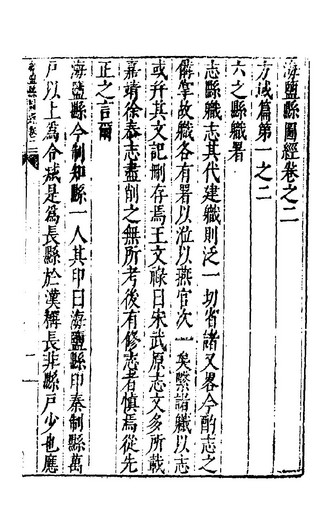 海鹽縣圖經卷之二
方域篇第一之二
六之縣職署
志縣職志其代建職則泛一切省諸又畧今酌志之
偹掌故職各有署以涖以燕官次一矣繫諸職以志
或幷其文記刪存焉王文祿曰宋武原志文多所載
嘉靖徐泰志盡削之無所考後有修志者慎焉從先
正之言爾
海鹽縣令制知縣一人其印曰海鹽縣印秦制縣萬
户以上為令减是為長縣於漢稱長非縣户少也應